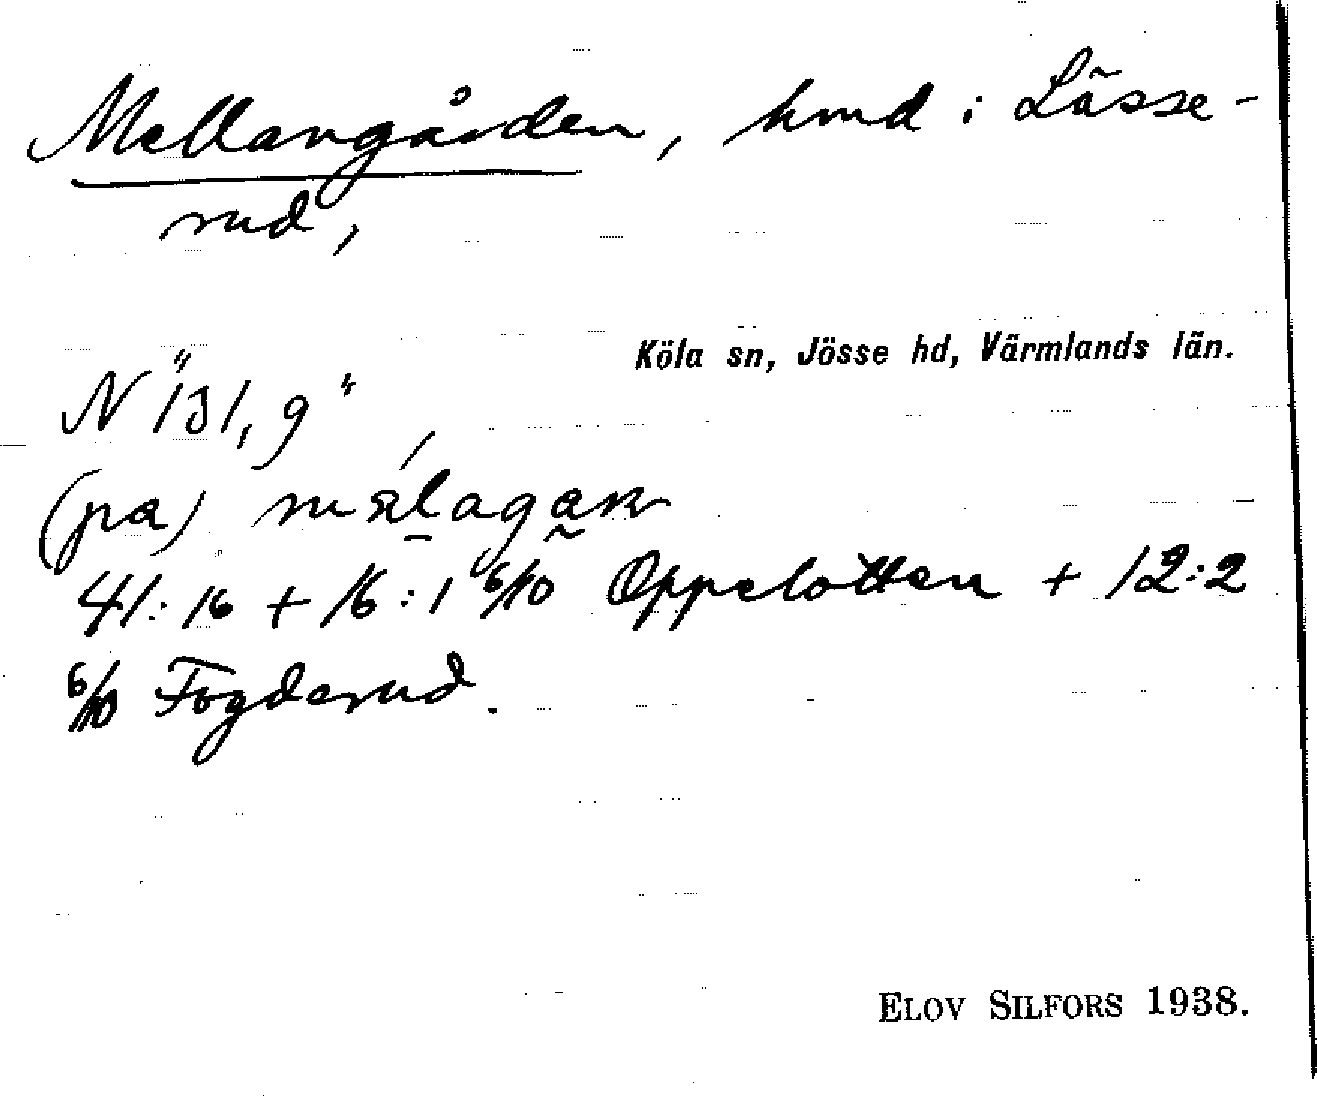 Mellangården, hmd i Lässe-
rud,
Köla sn, Jösse hd, Värmlands län.
N "131, 9",
(pa)
41:16 + 16:1 6/10 Oppelotten + 12:2
6/10 Fogderud.
ELOV SILFORS 1938.